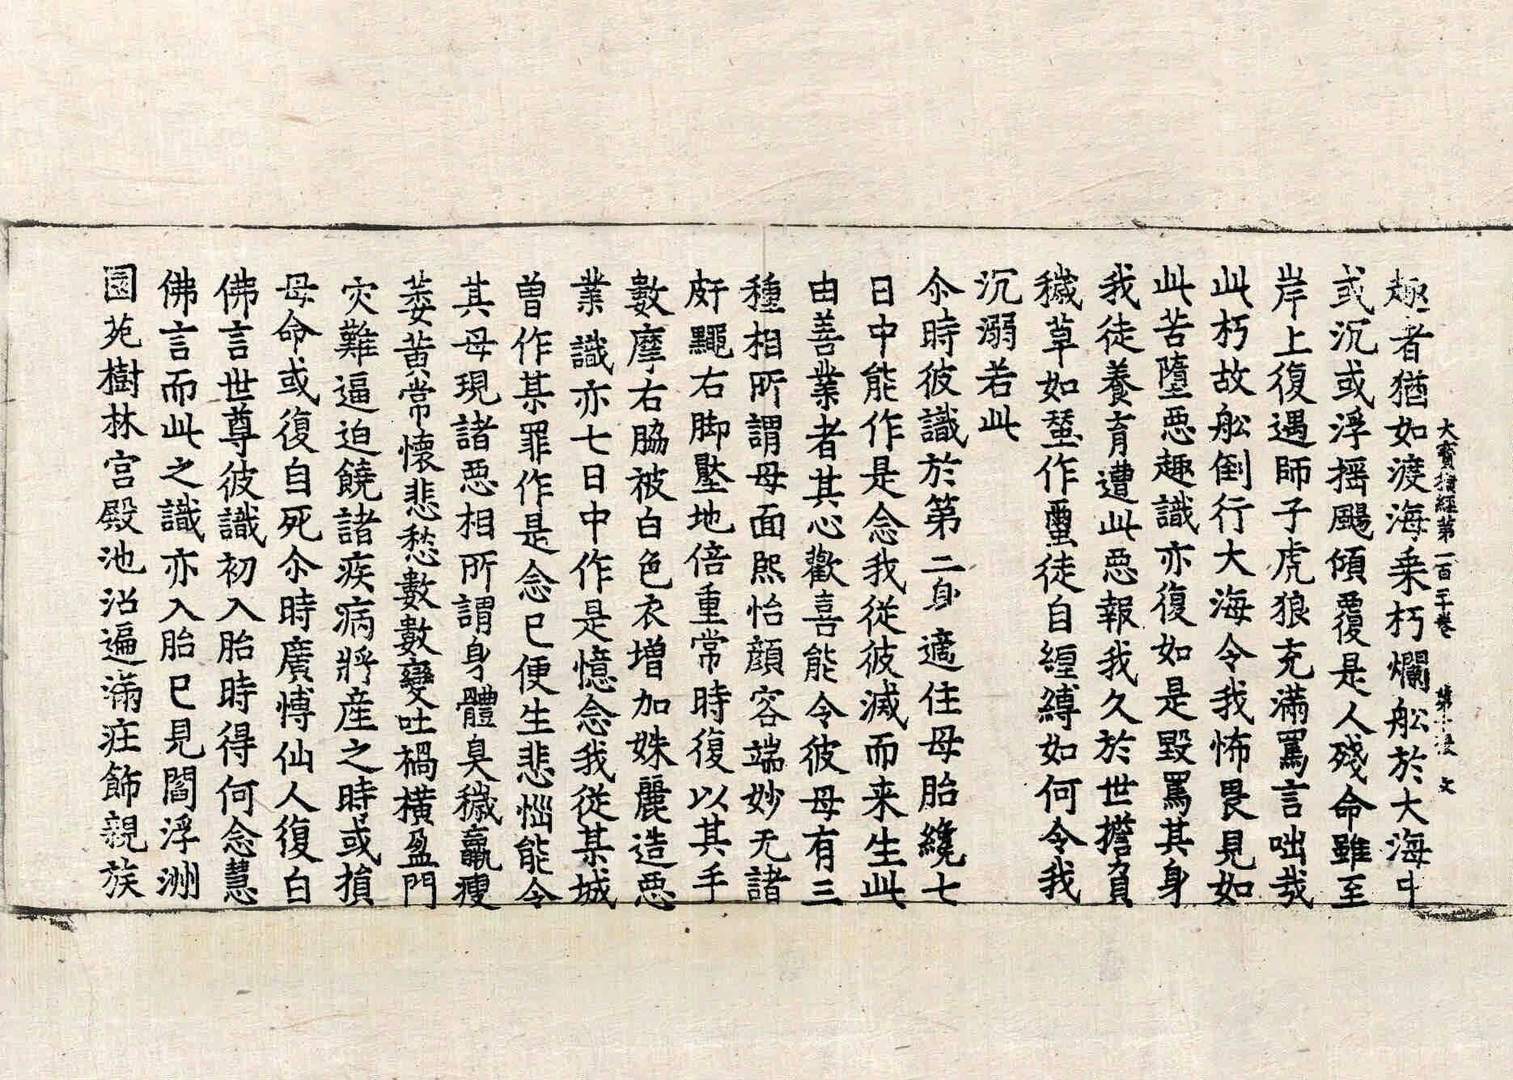 大寳積經第一百二十卷 第十張 文
趣者猶如渡海乗朽爛舩於大海中
或沉或浮揺颺傾覆是人殘命雖至
岸上復遇師子虎狼充滿罵言咄㢤
此朽故舩倒行大海令我怖畏見如
此苦墮惡趣識亦復如是毀罵其身
我徒養育遭此惡報我久於世擔負
穢草如蚕作䖝徒自纒縛如何令我
沉溺若此
尒時彼識於第二身適住母胎纔七
日中能作是念我從彼滅而来生此
由善業者其心歡喜能令彼母有三
種相所謂母面熙怡顔容端妙无諸
皯䵴右脚壓地倍重常時復以其手
數摩右脇被白色衣増加姝麗造惡
業識亦七日中作是憶念我從某城
曽作某罪作是念已便生悲惱能令
其母現諸惡相所謂身體臭穢羸瘦
萎黄常懷悲愁數數變吐禍橫盈門
灾難逼迫饒諸疾病將産之時或損
母命或復自死尒時廣愽仙人復白
佛言世尊彼識初入胎時得何念慧
佛言而此之識亦入胎已見閻浮洲
園苑樹林宫殿池沼遍滿莊飾親族